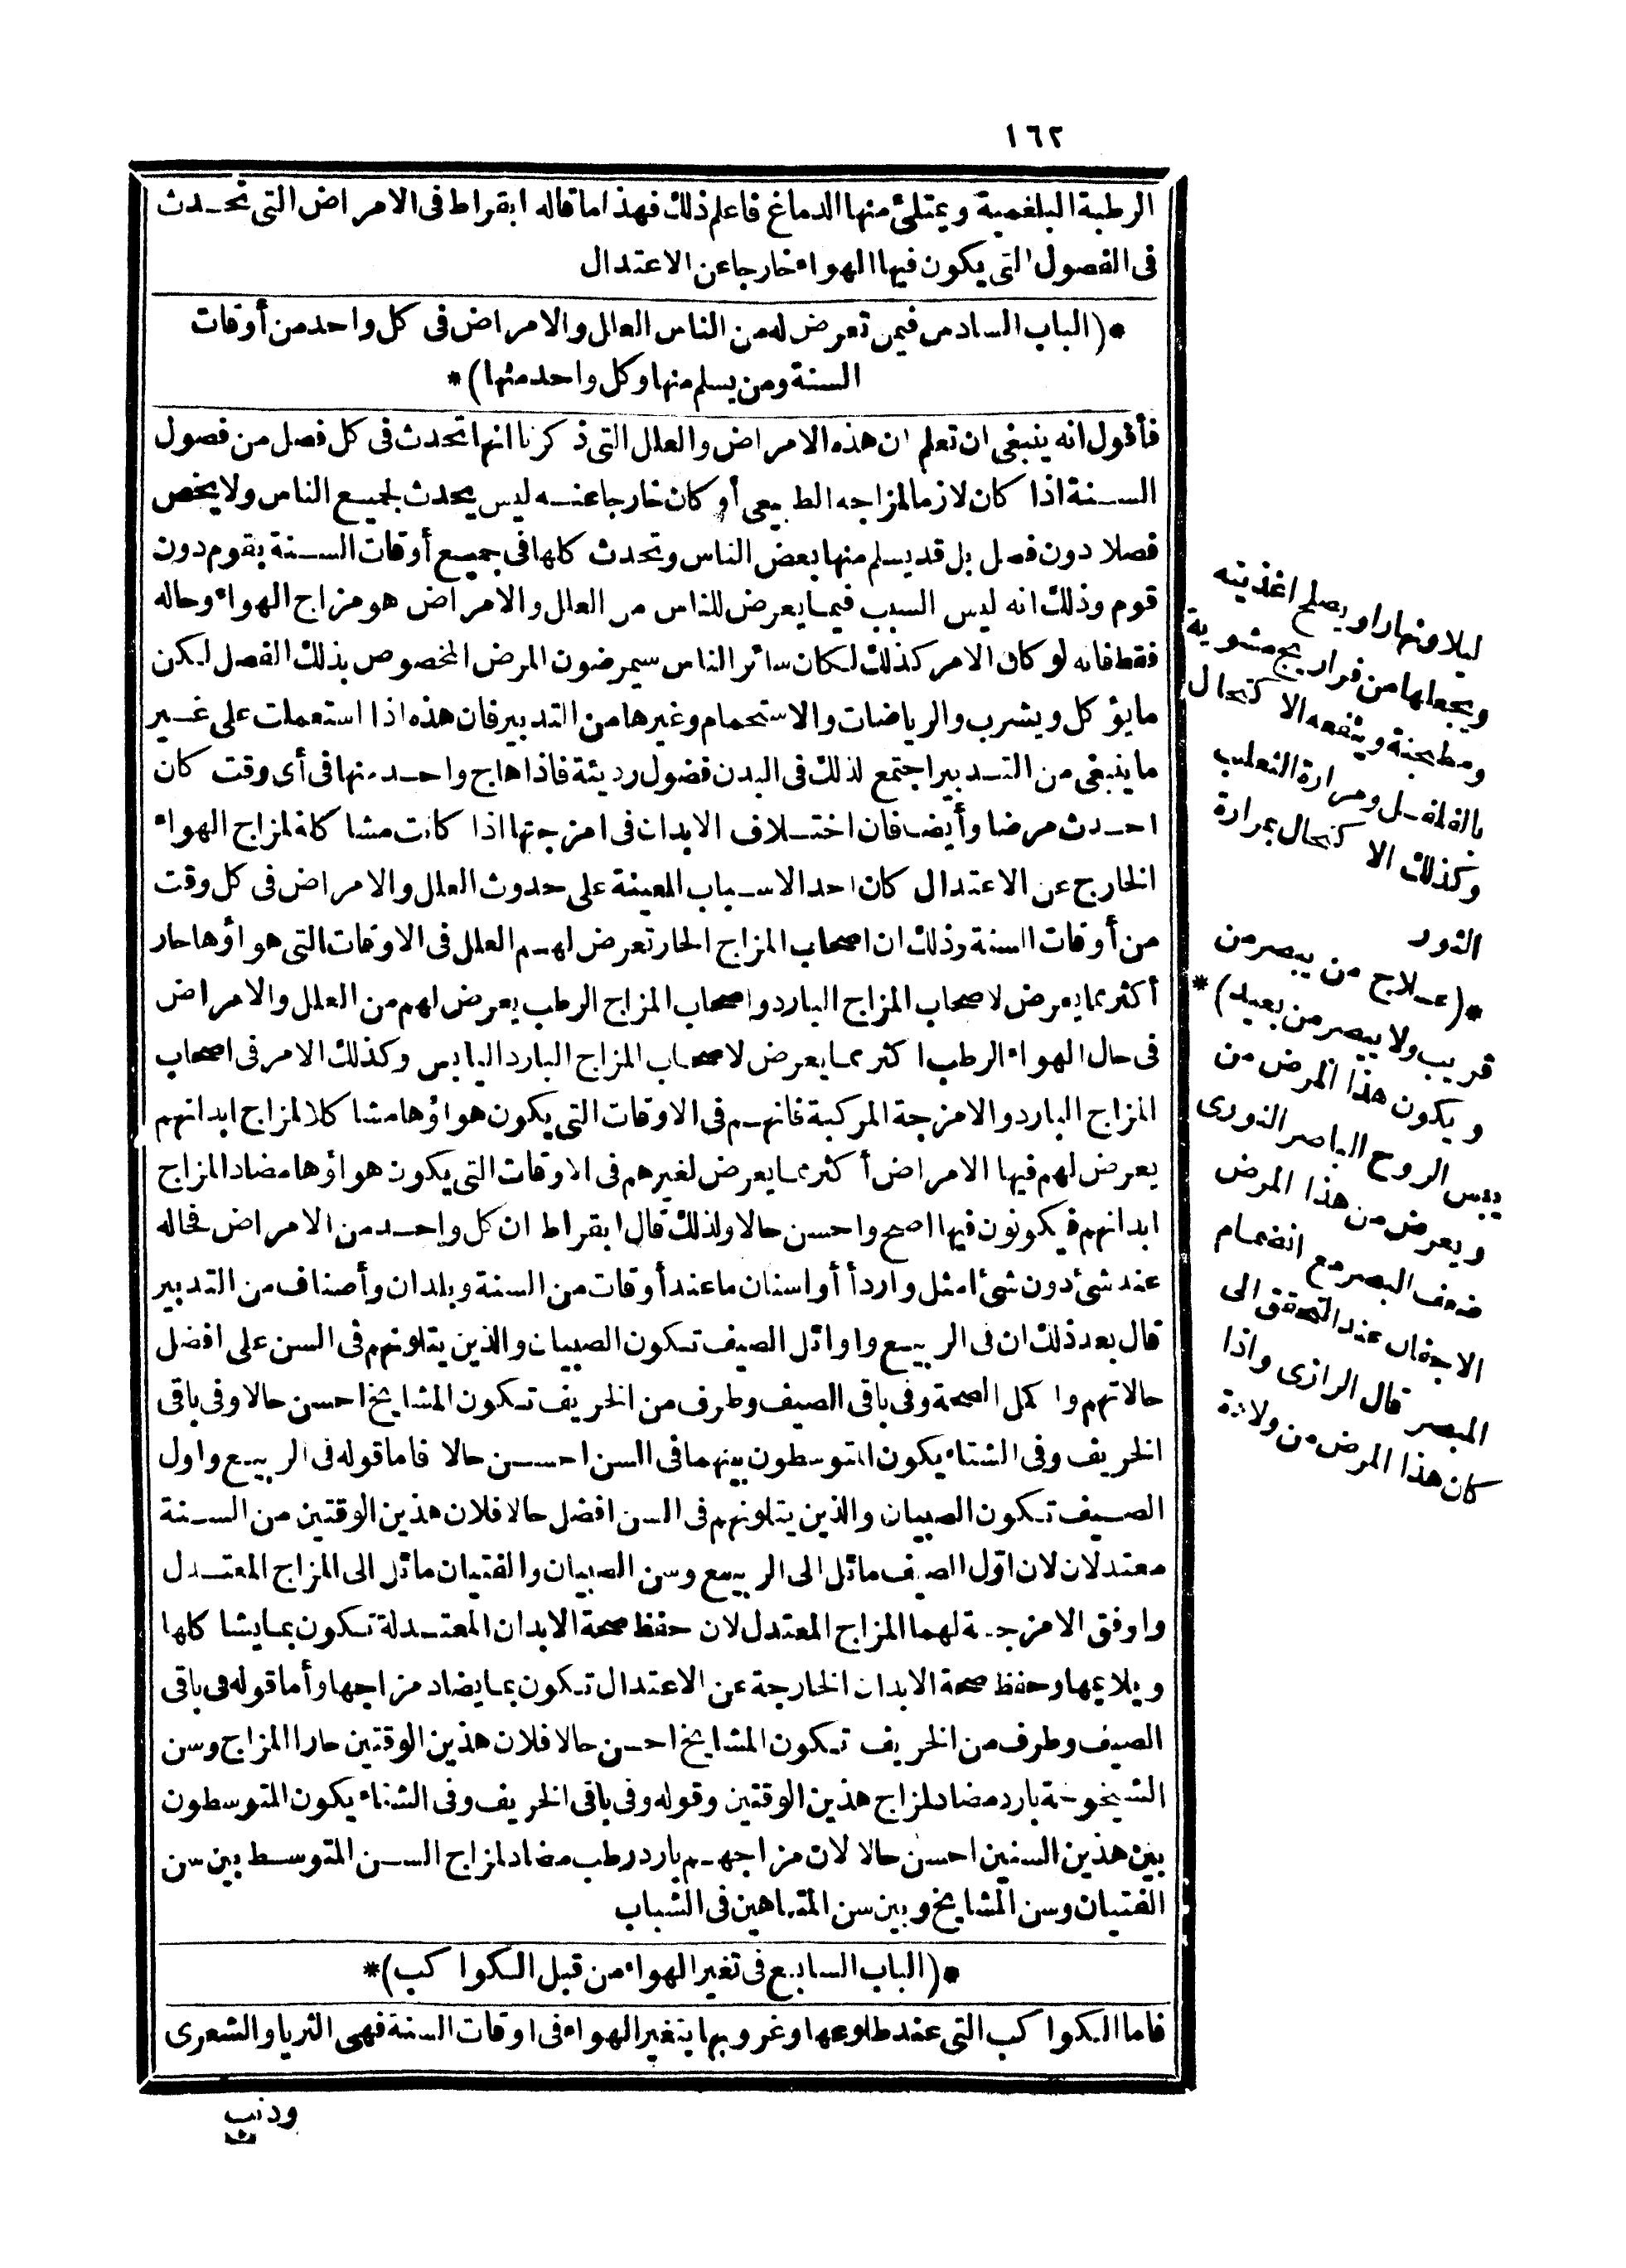 ١٦٢
الرطبة البلغمية ويمتلئ منها الدماغ فاعلم ذلك فهذا ما قاله ابقراط فى الامراض التى تحدث
فى الفصول التى يكون فيها الهواء خارجا عن الاعتدال
*(الباب السادس فيمن تعرض له من الناس العلل والامراض فى كل واحد من أوقات
السنة ومن يسلم منها وكل واحد منها)*
فأقول انه ينبغى ان تعلم ان هذه الامراض والعلل التى ذكرنا انها تحدث فى كل فصل من فصول
السنة اذا كان لازما لمزاجه الطبيعى أو كان خارجا عنه ليس يحدث لجميع الناس ولا يخص
فصلا دون فصل بل قد يسلم منها بعض الناس وتحدث كلها فى جميع أوقات السنة بقوم دون
قوم وذلك انه ليس السبب فيما يعرض للناس من العلل والامراض هو مزاج الهواء وحاله
فقط فانه لو كان الامر كذلك لكان سائر الناس سيمرضون المرض المخصوص بذلك الفصل لكن
ما يؤكل ويشرب والرياضات والاستحمام وغيرها من التدبير فان هذه اذا استعملت على غير
ما ينبغى من التدبير اجتمع لذلك فى البدن فضول رديئة فاذا هاج واحد منها فى أى وقت كان
احدث مرضا وأيضا فان اختلاف الابدان فى امزجتها اذا كانت مشاكلة لمزاج الهواء
الخارج عن الاعتدال كان احد الاسباب المعينة على حدوث العلل والامراض فى كل وقت
من أوقات السنة وذلك ان اصحاب المزاج الحار تعرض لهم العلل فى الاوقات التى هواؤها حار
أكثر مما يعرض لاصحاب المزاج البارد واصحاب المزاج الرطب يعرض لهم من العلل والامراض
فى حال الهواء الرطب اكثر مما يعرض لاصحاب المزاج البارد اليابس وكذلك الامر فى اصحاب
المزاج البارد والامزجة المركبة فانهم فى الاوقات التى يكون هواؤها مشاكلا لمزاج ابدانهم
يعرض لهم فيها الامراض أكثر مما يعرض لغيرهم فى الاوقات التى يكون هواؤها مضاد المزاج
ابدانهم فيكونون فيها اصح واحسن حالا ولذلك قال ابقراط ان كل واحد من الامراض فحاله
عند شئ دون شئ امثل واردأ أو اسنان ما عند أوقات من السنة وبلدان وأصناف من التدبير
قال بعد ذلك ان فى الربيع واوائل الصيف تكون الصبيان والذين يتلونهم فى السن على افضل
حالاتهم واكمل الصحة وفى باقى الصيف وطرف من الخريف تكون المشايخ احسن حالا وفى باقى
الخريف وفى الشتاء يكون المتوسطون بينهما فى السن احسن حالا فاما قوله فى الربيع واول
الصيف تكون الصبيان والذين يتلونهم فى السن افضل حالا فلان هذين الوقتين من السنة
معتدلان لان اوّل الصيف مائل الى الربيع وسن الصبيان والفتيان مائل الى المزاج المعتدل
واوفق الامزجة لهما المزاج المعتدل لان حفظ صحة الابدان المعتدلة تكون بما يشاكلها
ويلايمها وحفظ صحة الابدان الخارجة عن الاعتدال تكون بما يضاد مزاجها وأما قوله فى باقى
الصيف وطرف من الخريف تكون المشايخ احسن حالا فلان هذين الوقتين حارا المزاج وسن
الشيخوخة بارد مضاد لمزاج هذين الوقتين وقوله وفى باقى الخريف وفى الشتاء يكون المتوسطون
بين هذين السنين احسن حالا لان مزاجهم بارد رطب مضاد لمزاج السن المتوسط بين سن
الفتيان وسن المشايخ وبين سن المتناهين فى الشباب
*(الباب السابع فى تغير الهواء من قبل الكواكب)*
فاما الكواكب التى عند طلوعها وغروبها يتغير الهواء فى اوقات السنة فهى الثريا والشعرى
وذنب
ليلا ونهارا ويصلح اغذيته
ويجعلها من فراريج مشوية
ومطجنة وينفعه الاكتحال
بالفلفل ومرارة الثعلب
وكذلك الاكتحال بمرارة
الثور
*(علاج من يبصر من
قريب ولا يبصر من بعيد)*
ويكون هذا المرض من
يبس الروح الباصر النورى
ويعرض من هذا المرض
ضعف البصر مع انضمام
الاجفان عند التحقق الى
المبصر قال الرازى واذا
كان هذا المرض من ولادة